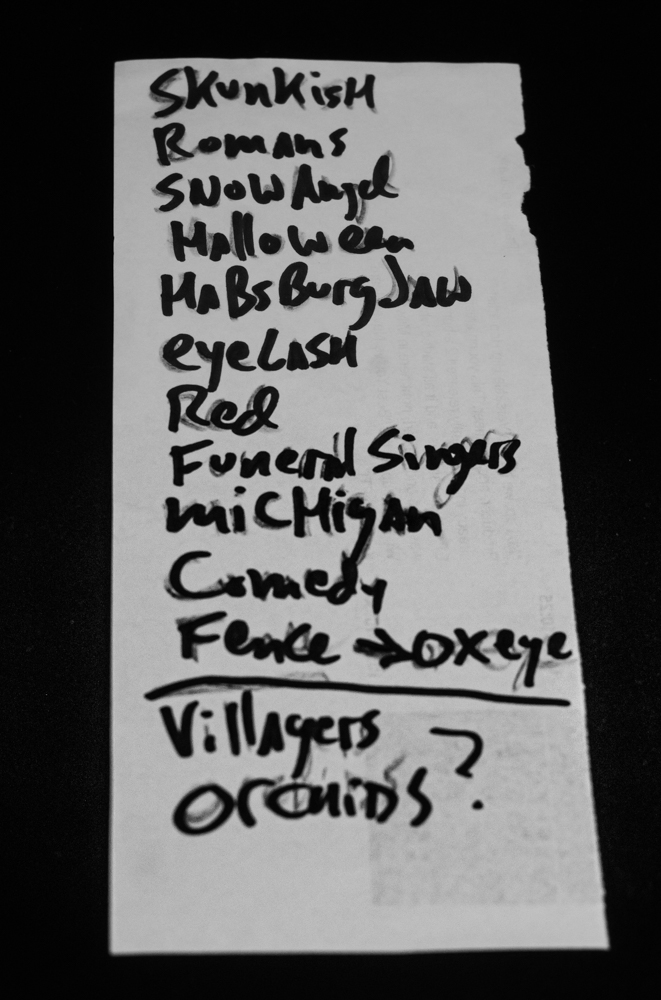 SKunKisH
Romans
SNOW Angel
Halloween
HABsBurg JAW
eyeLASH
Red
Funeral Singers
miCHigAn
Comedy
Fence → oxeye
VillAgers
orcHiDs ?